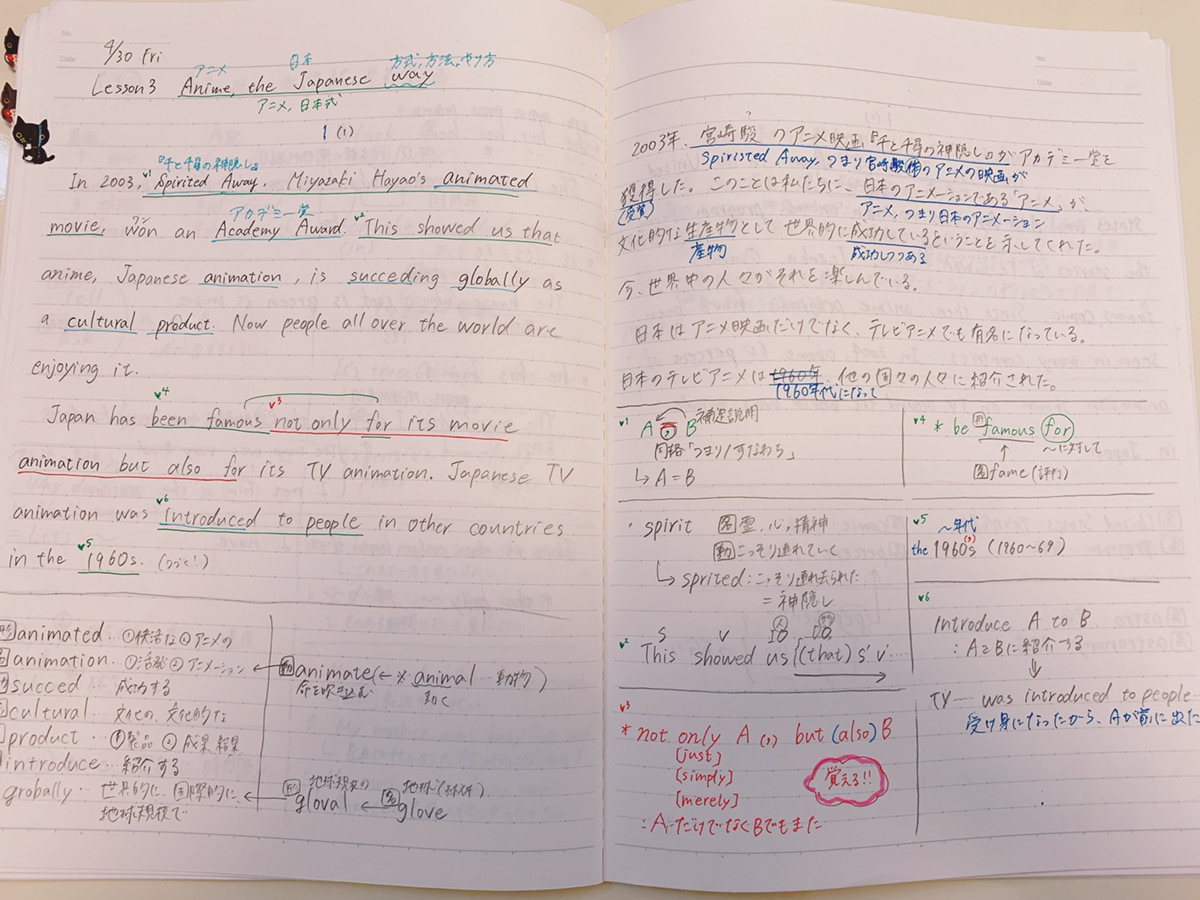 No.
Date
4/30 Fri
アニメ 日本 方式,方法,やり方
Lesson3 Anime, the Japanese way
アニメ,日本式
1 (1)
『千と千尋の神隠し』
In 2003, v1 Spirited Away. Miyazaki Hayao's animated
ワン アカデミー賞 v2
movie, won an Academy Award. This showed us that
anime, Japanese animation, is succeding globally as
a cultural product. Now people all over the world are
enjoying it.
v4 v3
Japan has been famous not only for its movie
animation but also for its TV animation. Japanese TV
v6
animation was introduced to people in other countries
in the v5 1960s. (つづく)
形 animated ‥ ①快活な ②アニメの
animation ‥ ①活発 ②アニメーション
succed ‥ 成功する
cultural ‥ 文化の、文化的な
product ‥ ①製品 ②成果 結果
introduce ‥ 紹介する
grobally ‥ 世界的に、国際的に、
地球規模で
動 animate (← * animal ‥ 動物)
命を吹き込む 動く
形 地球規模の 名 地球(球体)
gloval ← glove
No.
Date
2003年、宮崎駿のアニメ映画『千と千尋の神隠し』がアカデミー賞を
Spiristed Away, つまり宮崎駿作のアニメの映画が
獲得した。このことは私たちに、日本のアニメーションである「アニメ」が、
(受賞) アニメ,つまり日本のアニメーション
文化的な生産物として世界的に成功しているということを示してくれた。
産物 成功しつつある
今、世界中の人々がそれを楽しんでいる。
日本はアニメ映画だけでなく、テレビアニメでも有名になっている。
日本のテレビアニメは1960年、他の国々の人々に紹介された。
1960年代になって
v1 A , B 補足説明
同格「つまり/すなわち」
↳ A = B
・spirit 名 霊,心,精神
動 こっそり連れていく
↳ sprited : こっそり連れ去られた
= 神隠し
S V 人 IO 物 DO
v2 This showed us (that) s' v' …
v3
* not only A (,) but (also) B
[just]
[simply]
[merely]
覚える!!
: AだけでなくBでもまた
v4 * be 形 famous for
〜に対して
名 fame (評判)
v5 〜年代
the 1960s (1960〜69)
v6
Introduce A to B
: AをBに紹介する
↓
TV — was introduced to people
受け身になったから、Aが前に出た